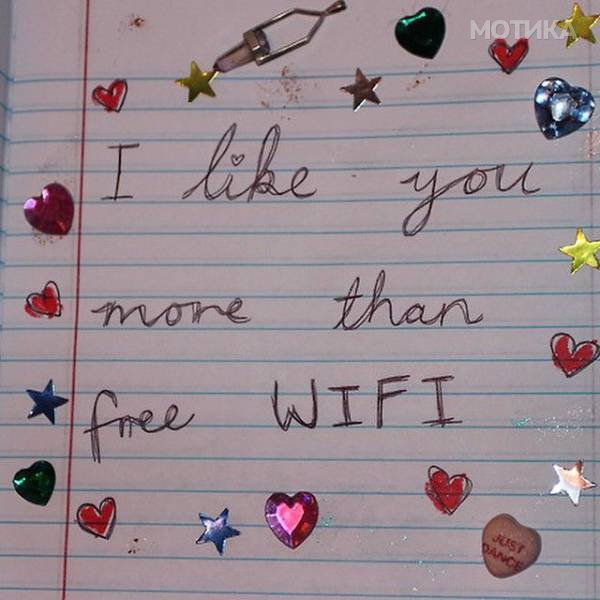 МОТИКА
I like you
more than
free WIFI
JUST
DANCE